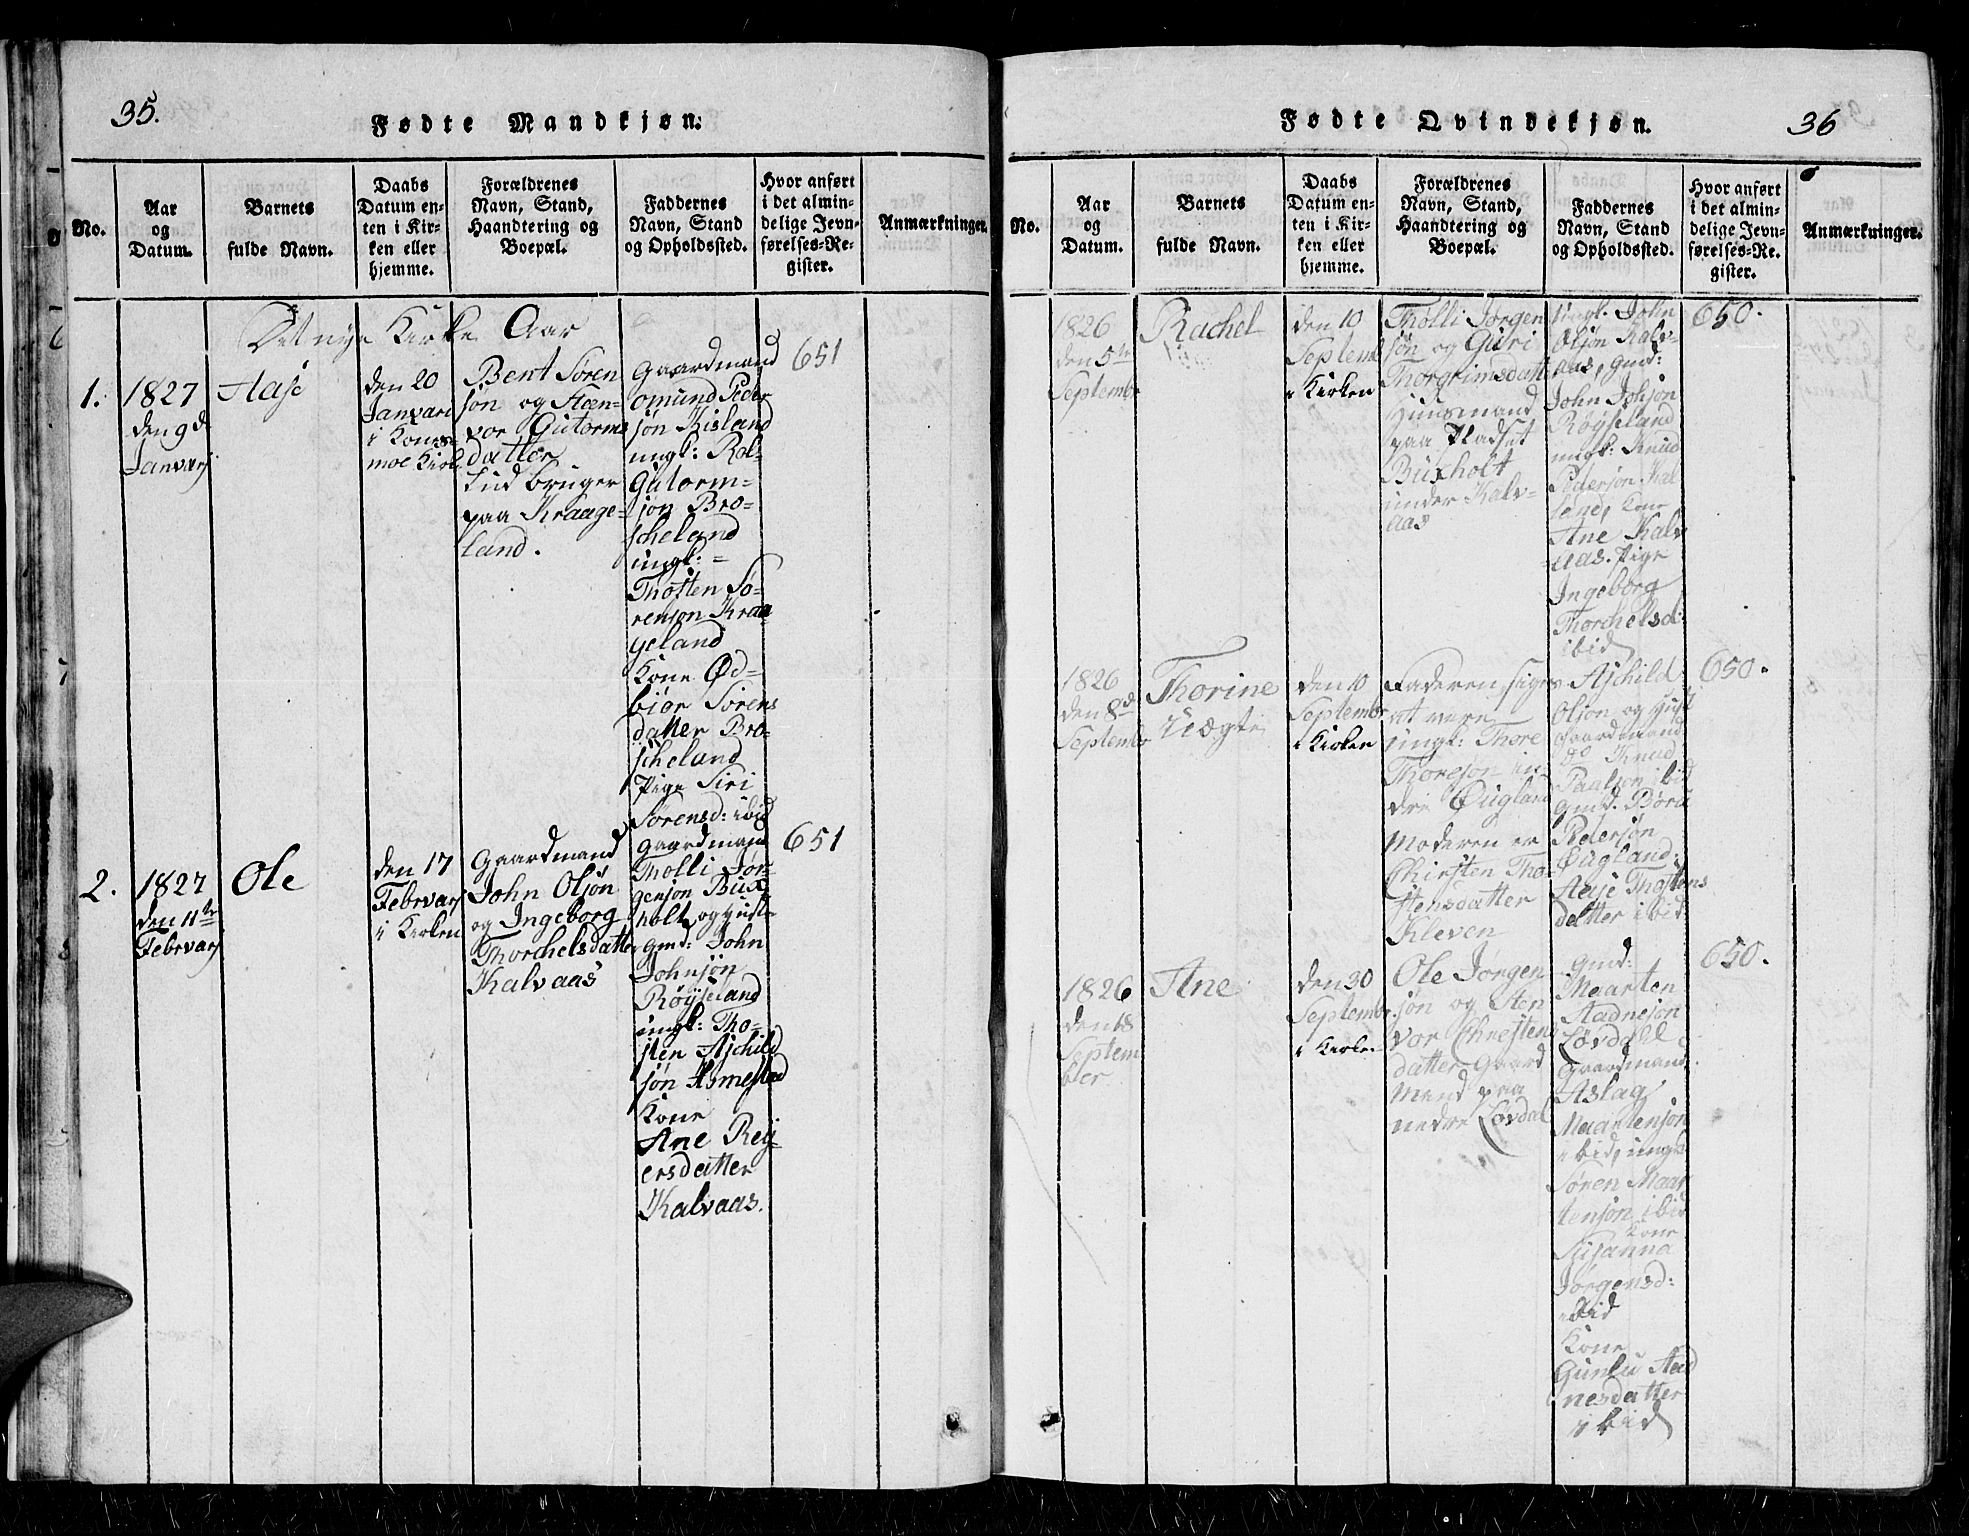 35.
Fødte Mandkjøn.
No.
Aar
og
Datum.
Barnets
fulde Navn.
Daabs
Datum en-
ten i Kir-
ken eller
hjemme.
Forældrenes
Navn, Stand,
Haandtering og
Boepæl.
Faddernes
Navn, Stand
og Opholdssted.
Hvor anført
i det almin-
delige Jevn-
førelses-Re-
gister.
Anmærkninger.
Det nye Kirke Aar
1.
1827
den 9d
Januarj
Aase
den 20
Januari
i
Bent Sören
sön og Stæn-
vor Gutorms
datter
bruger
paa Kraage-
land.
Gaardmand
Omund Peder
sön Kisland
ungk:
Gutorm-
sön Bro-
scheland
ungk:
Thosten Sö-
rensön Kraa
geland
Kone Öd-
biör Sörens
datter Bro-
scheland
Pige Siri
Sörensd: ibid
651
2.
1827
den 11te
Februarj
Ole
den 17
Februarj
i Kirken
Gaardmand
John Olsön
og Ingeborg
Thorchelsdatter
Kalvaas
Gaardmand
Tholli Jör-
gensön Bux
holt og Hust-
gmd: John
Johnsön
Röyseland
ungk: Tho-
sten Aschild
sön
Kone
Ane Reij
ersdatter
Kalvaas.
651
Fødte Qvindekjøn.
36
No.
Aar
og
Datum.
Barnets
fulde Navn.
Daabs
Datum en-
ten i Kir-
ken eller
hjemme.
Forældrenes
Navn, Stand,
Haandtering og
Boepæl.
Faddernes
Navn, Stand
og Opholdssted.
Hvor anført
i det almin-
delige Jevn-
førelses-Re-
gister.
Anmærkninger.
1826
den 5te
Septembr
Rachel
den 10
Septemb
i Kirken
Tholli Jörgen
sön og Guri
Thorgrimsdatt
Huusmand
paa Pladset
Buxholt
under Kalv-
aas
ungk: John
Olsön Kalv-
aas, gmd:
John Johsön
Röyseland
ungk: Knud
Pedersön
Kone
Ane Kalv
aas. Pige
Ingeborg
Thorchelsd:
ibid
650.
1826
den 8d
Septembr
Thorine
Uægte
den 10
Septembr
i Kirken
Faderen siges
at være
ungk: Thore
Thoresön in-
dre Öugland
Moderen er
Chirsten Tho-
stensdatter
Kleven
Aschild
Olsön og Hust
Gaardmand
Knud
Paalsen ibid
gmd. Böru
Pedersön
Öugland:
Thostens
datter ibid:
650.
1826
den 18
Septem
ber
Ane
den 30
Septembr
i Kirken
Ole Jörgen
sön og Sten
vor Chresten
datter Gaard
mend paa
nedre Lövdal
gmd:
Maarten
Aadnesön
Lövdahl
Gaardmand
Aslag
Maartensön
ibid, ungk
Sören Maar
tensön ibid
Kone
Susanna
Jörgensd:
ibid
Kone
Gunlu Aad
nesdatter
ibid
650.